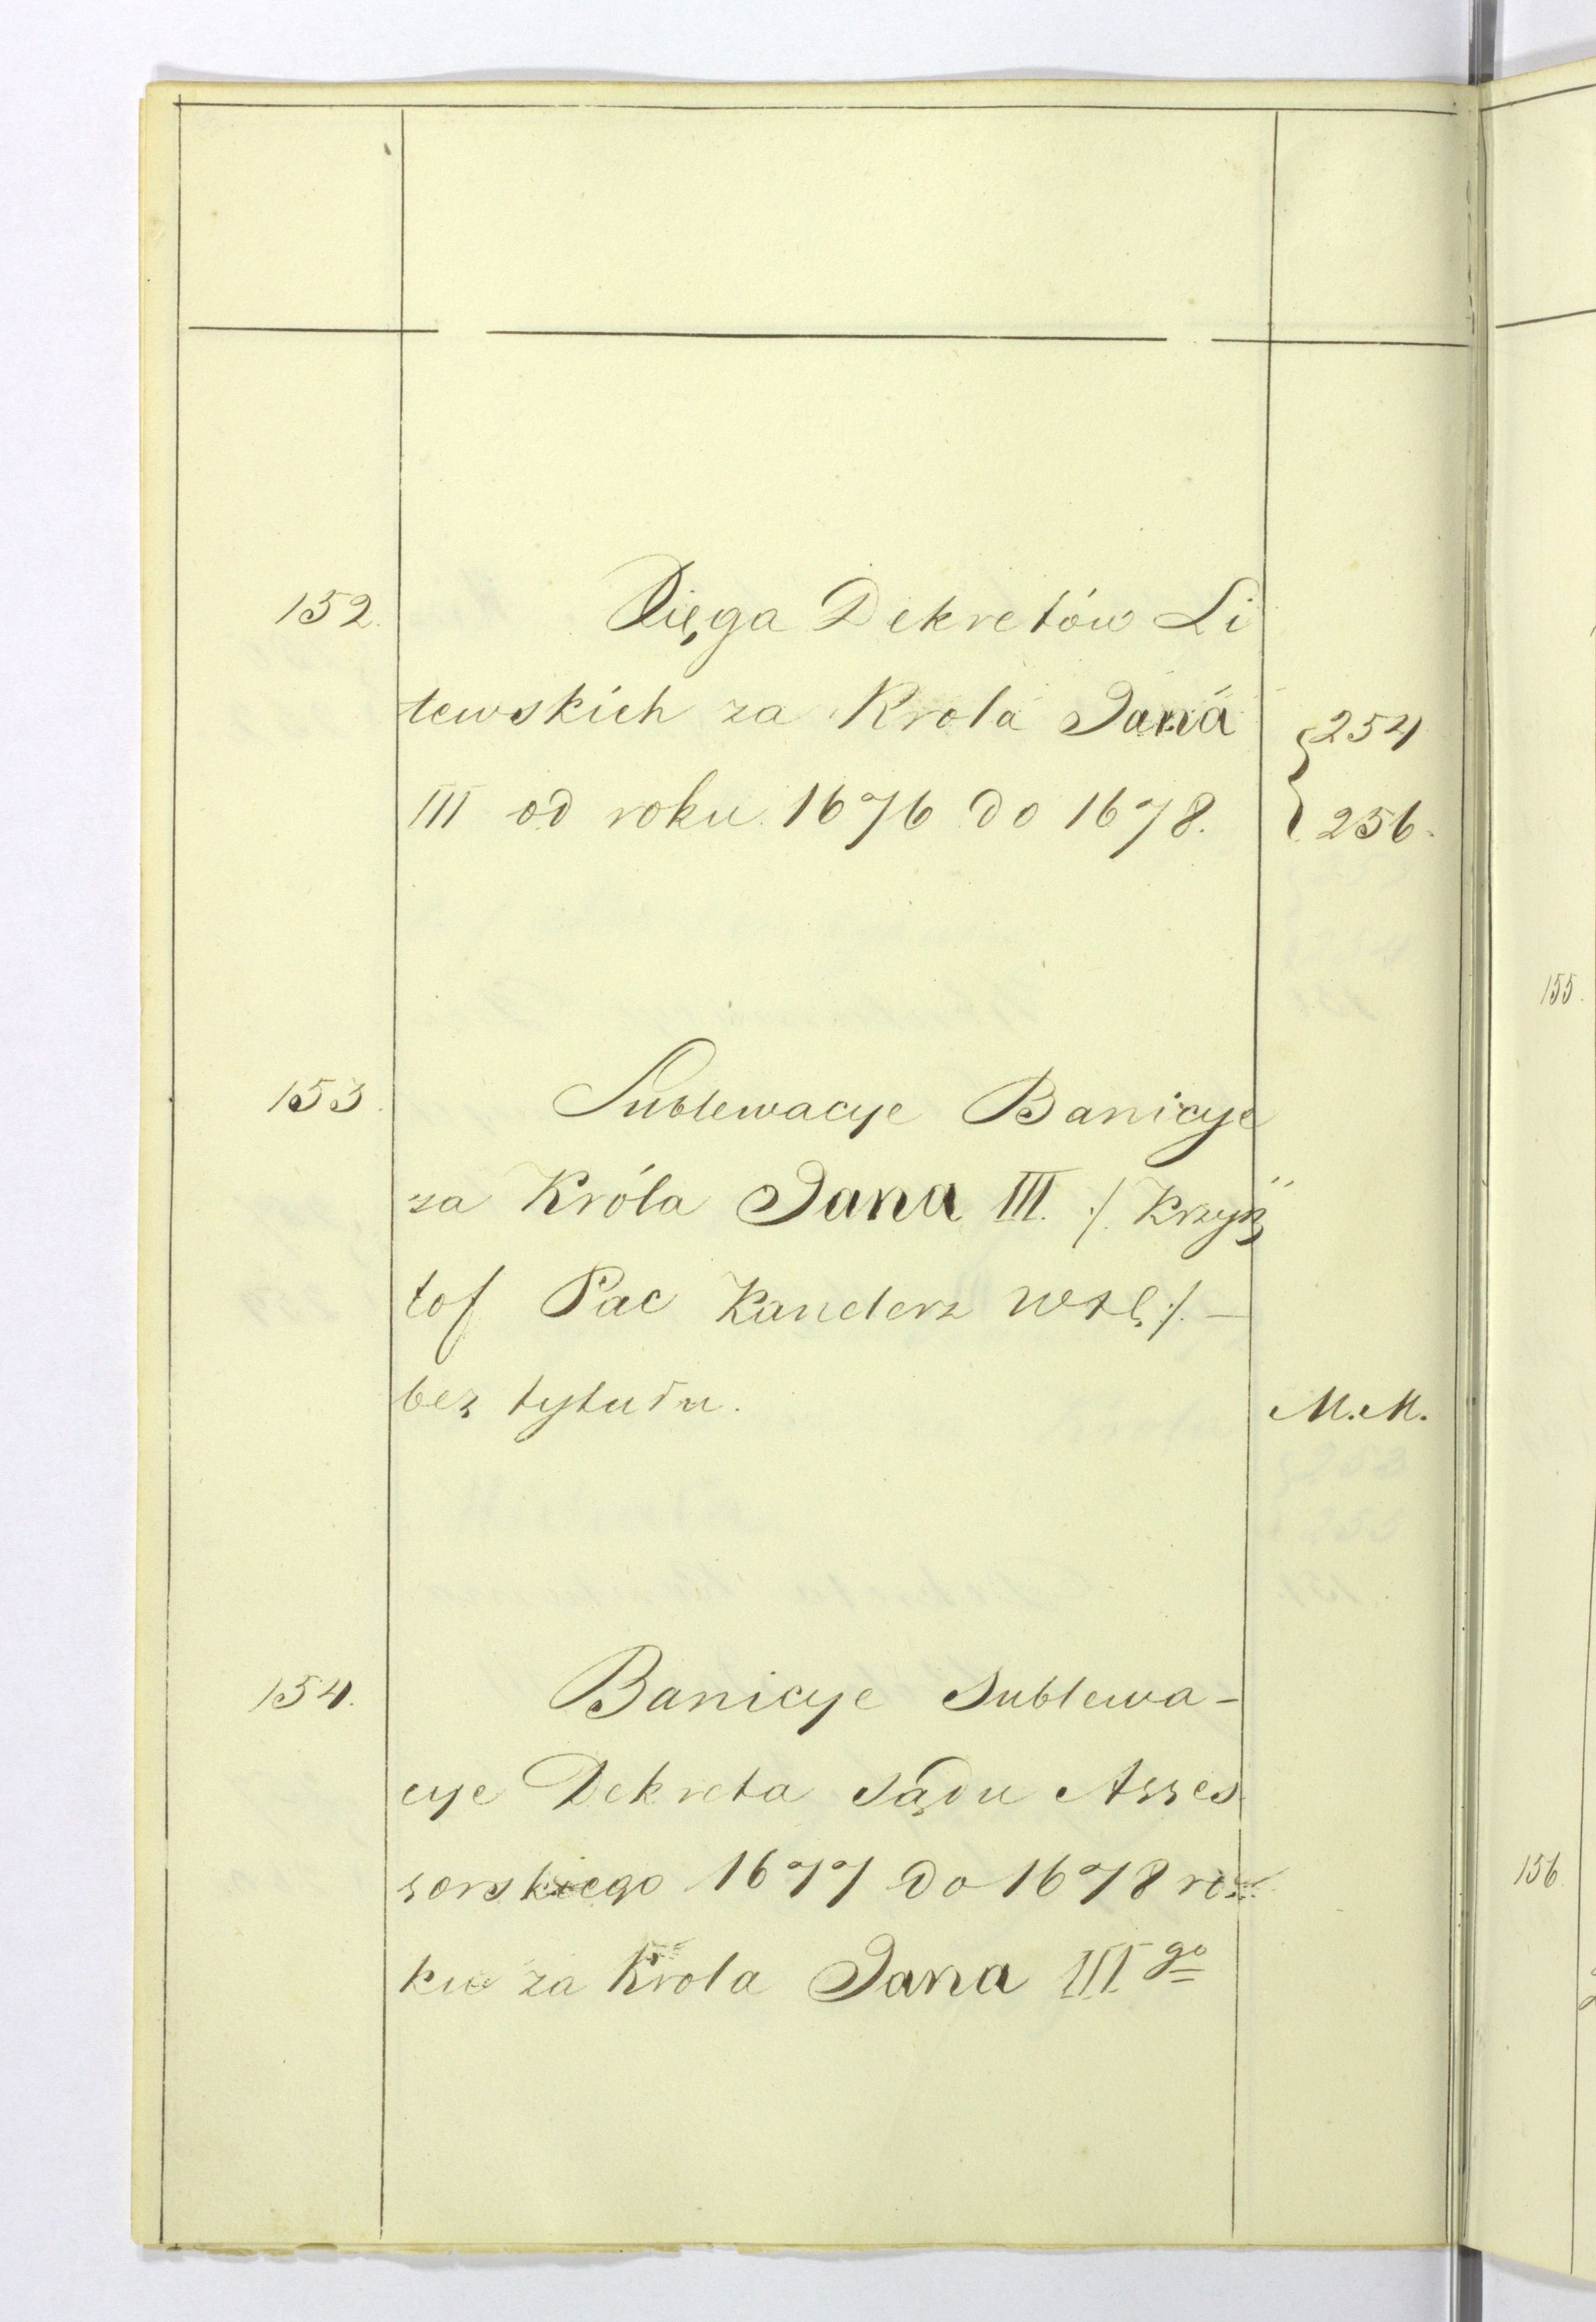 152. Xięga Dekretów Li
tewskich za Krola Jana
254
III od roku 1676 do 1678.
256.
155.
153. Sublewacye Banicye
za Króla Jana III. /. Krzysz
tof Pac Kanclerz WXL ./. —
bez tytułu. M.M.
154. Banicye Sublewa-
cye Dekreta Sądu Asses
sorskiego 1677 do 1678 ro
156.
ku za Krola Jana III go